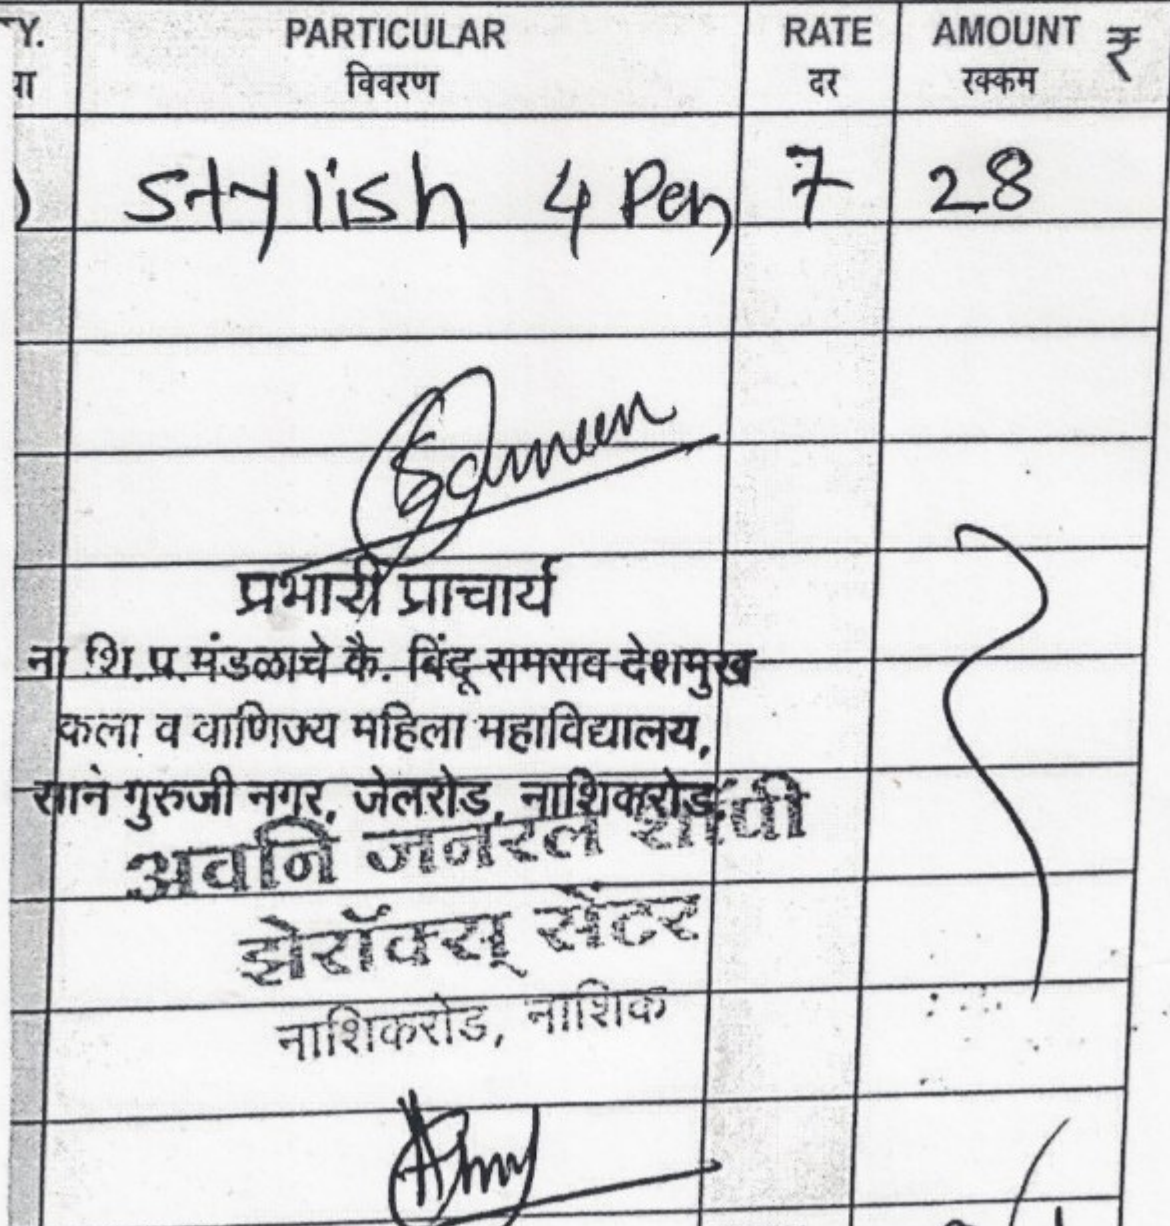 Y. PARTICULAR RATE AMOUNT ₹
विवरण दर रक्कम
Stylish 4 Pen 7 28
प्रभारी प्राचार्य
ना.शि.प्र.मंडळाचे कै. बिंदू रामराव देशमुख
कला व वाणिज्य महिला महाविद्यालय,
साने गुरुजी नगर, जेलरोड, नाशिकरोड,
अवनि जनरल शॉपी
झेरॉक्स् सेंटर
नाशिकरोड, नाशिक